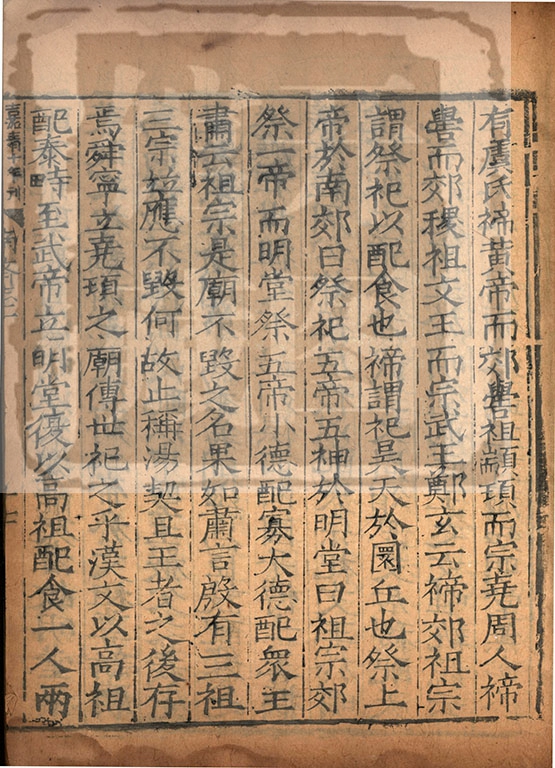 有虞氏禘黃帝而郊嚳祖顓頊而宗堯周人禘
嚳而郊稷祖文王而宗武王鄭玄云禘郊祖宗
謂祭祀以配食也禘謂祀昊天於圜丘也祭上
帝於南郊曰祭祀五帝五神於明堂曰祖宗郊
祭一帝而明堂祭五帝小德配寡大德配衆王
肅云祖宗是廟不毀之名果如肅言殷有三祖
三宗並應不毀何故止稱湯契且王者之後存
焉舜寧立堯頊之廟傳世祀之乎漢文以高祖
配泰畤至武帝立明堂復以高祖配食一人兩
嘉靖十年刊